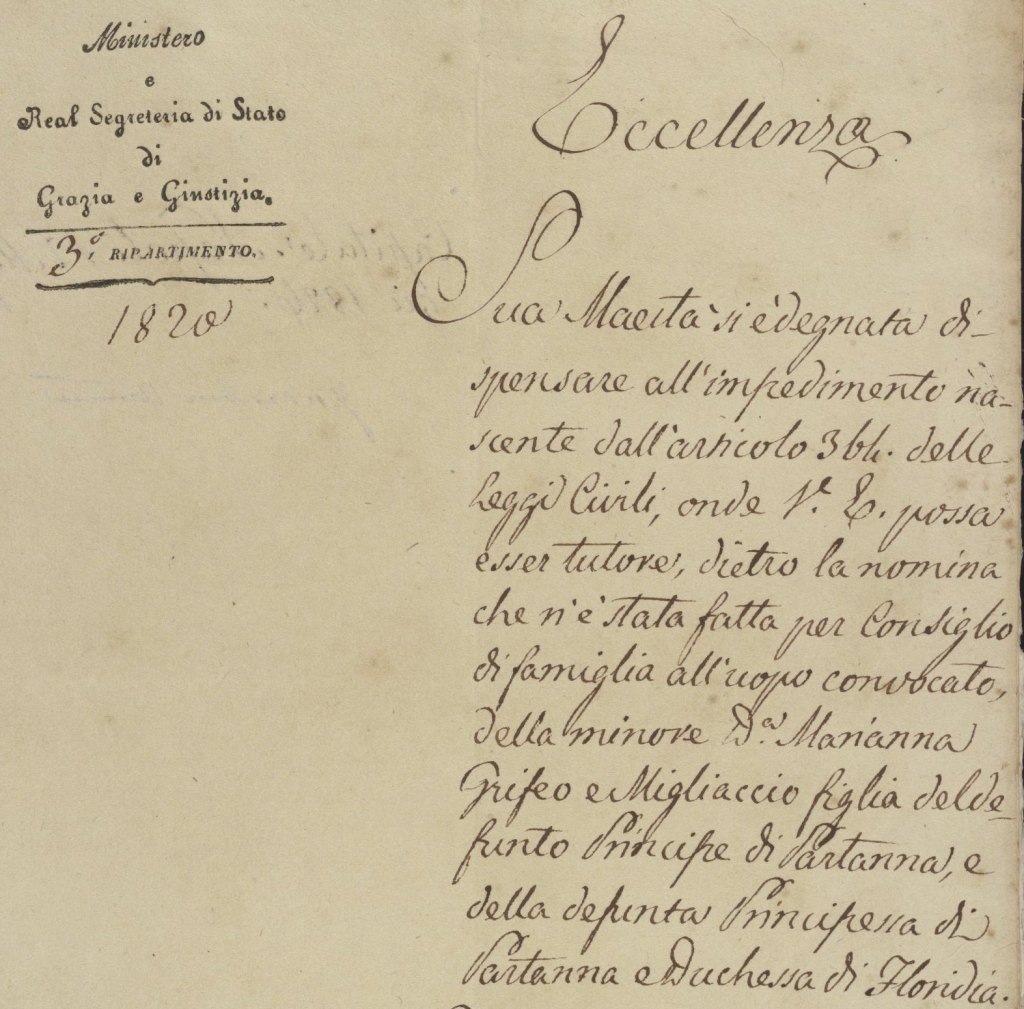 Ministero
e
Real Segreteria di Stato
di
Grazia e Giustizia.
3.º RIPARTIMENTO.
1820
Eccellenza
Sua Maestà si è degnata di-
spensare all'impedimento na-
scente dall'articolo 364. delle
Leggi Civili, onde V. E. possa
esser tutore, dietro la nomina
che n'è stata fatta per Consiglio
di famiglia all'uopo convocato,
della minore D.ª Marianna
Grifeo e Migliaccio figlia del de-
funto Principe di Partanna, e
della defunta Principessa di
Partanna e Duchessa di Floridia.